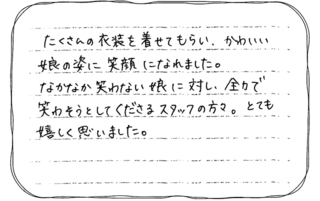 たくさんの衣装を着せてもらい、かわいい
娘の姿に笑顔になれました。
なかなか笑わない娘に対し、全力で
笑わそうとしてくださるスタッフの方々。とても
嬉しく思いました。